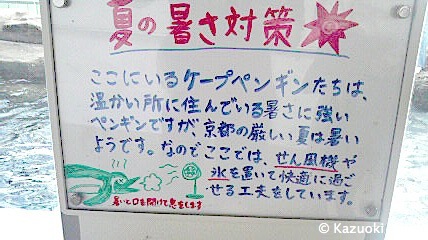 夏の暑さ対策
ここにいるケープペンギンたちは、
温かい所に住んでいる暑さに強い
ペンギンですが、京都の厳しい夏は暑い
ようです。なのでここでは、せん風機や
氷を置いて快適に過ご
せる工夫をしています。
暑いと口を開けて息をします
© Kazuoki